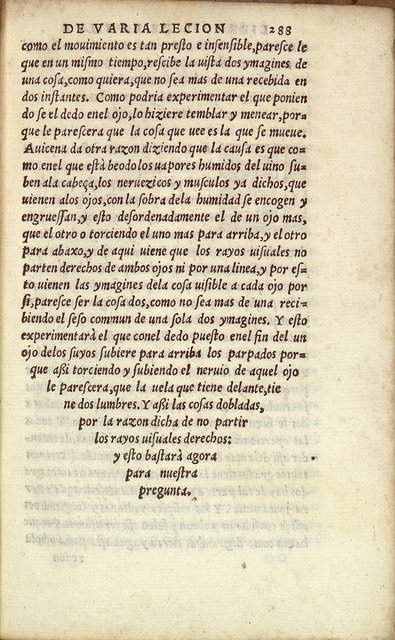 DE VARIA LECION 288
como el mouimiento es tan presto e insensible, paresce le
que en un mismo tiempo, rescibe la uista dos ymagines de
una cosa, como quiera, que no sea mas de una recebida en
dos instantes. Como podria experimentar el que ponien
do se el dedo enel ojo, lo hiziere temblar y menear, por-
que le parescera que la cosa que uee es la que se mueue.
Auicena da otra razon diziendo que la causa es que co-
mo enel que està beodo los uapores humidos del uino su-
ben ala cabeça, los neruezicos y musculos ya dichos, que
uienen alos ojos, con la sobra dela humidad se encogen y
engruessan, y esto desordenadamente el de un ojo mas,
que el otro o torciendo el uno mas para arriba, y el otro
para abaxo, y de aqui uiene que los rayos uisuales no
parten derechos de ambos ojos ni por una linea, y por es-
to uienen las ymagines dela cosa uisible a cada ojo por
si, paresce ser la cosa dos, como no sea mas de una reci-
biendo el seso commun de una sola dos ymagines. Y esto
experimentarà el que conel dedo puesto enel fin del un
ojo delos suyos subiere para arriba los parpados por-
que assi torciendo y subiendo el neruio de aquel ojo
le parescera, que la uela que tiene delante, tie
ne dos lumbres. Y assi las cosas dobladas,
por la razon dicha de no partir
los rayos uisuales derechos:
y esto bastarà agora
para nuestra
pregunta.